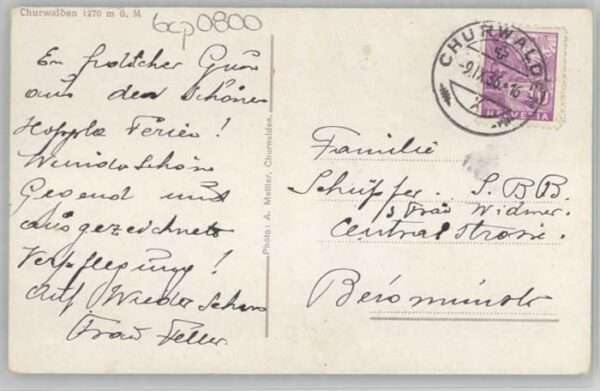 Churwalden 1270 m ü. M
bcp0800
En frölicher Gruss
aus den Schönen
Hoppla Ferien!
Wunderschöne
Gegend und
ausgezeichnete
Verpflegung!
Auf Wiedersehen
Frau Feller.
Photo: A. Meitler, Churwalden.
CHURWALDEN
-9.IX.35.-16
HELVETIA
Familie
Schüpfer. S.B.B.
z Frau Widmer.
Centralstrasse.
Beromünster